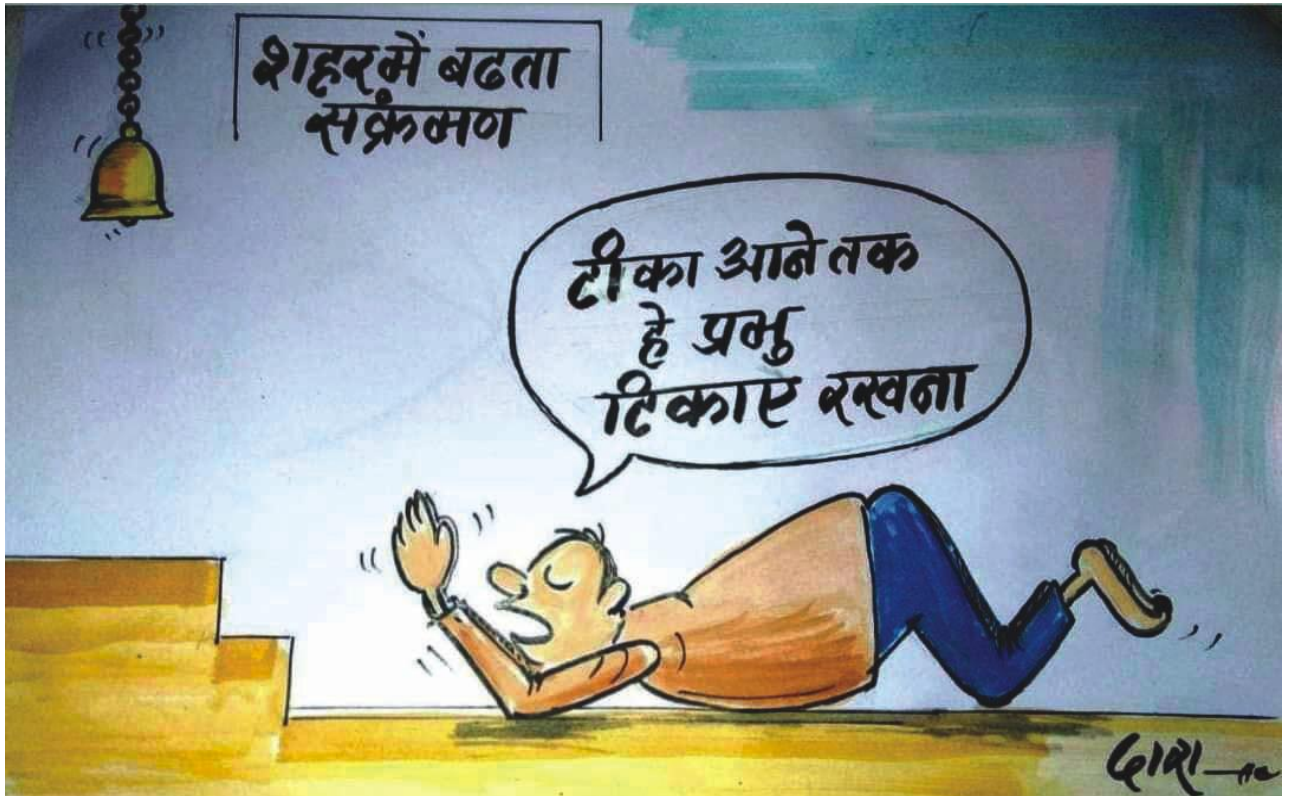 शहर में बढता
सक्रंमण
टीका आने तक
हे प्रभु
टिकाए रखना